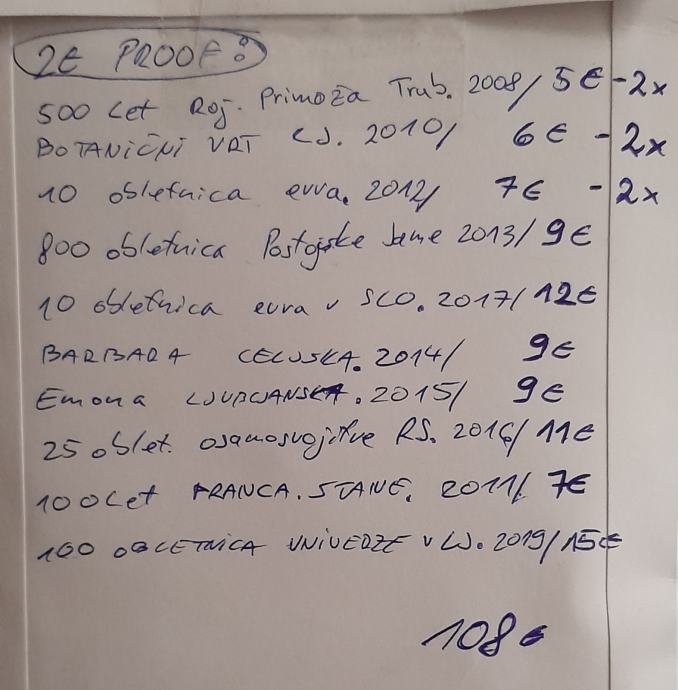 2€ PROOF:
500 Let Roj. Primoža Trub. 2008/ 5€ - 2x
BOTANIČNI VRT LJ. 2010/ 6€ - 2x
10 obletnica evra. 2012/ 7€ - 2x
800 obletnica Postojske Jame 2013/ 9€
10 obletnica eura v SLO. 2017/ 12€
BARBARA CELJSKA. 2014/ 9€
Emona LJUBLJANSKA. 2015/ 9€
25 oblet. osamosvojitve RS. 2016/ 11€
100 Let FRANCA. STANE. 2011/ 7€
100 OBLETNICA UNIVERZE v LJ. 2019/ 15€
108€